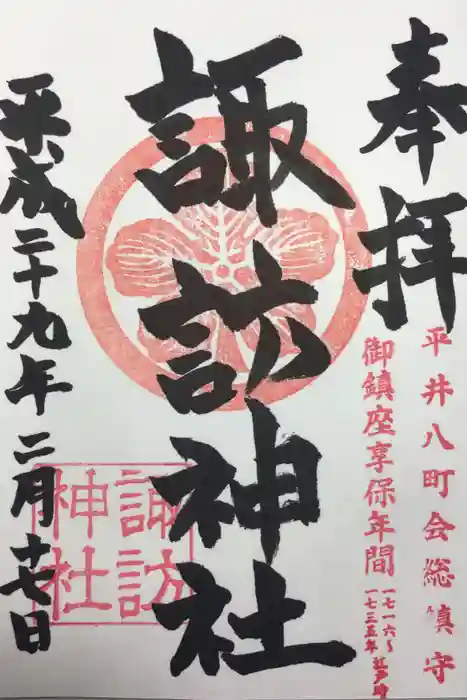 奉拝
平井八町会総鎮守
御鎮座享保年間
一七一六〜
一七三五年 江戸時
諏訪神社
諏訪
神社
平成二十九年二月十七日